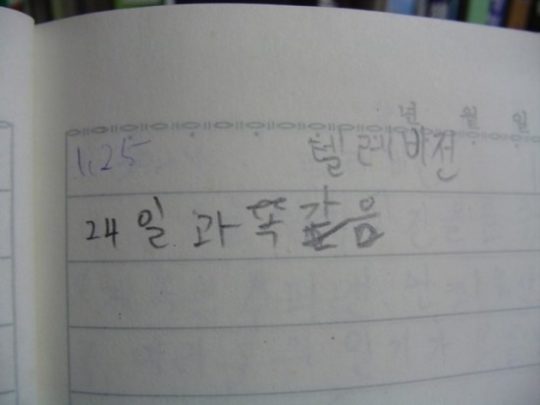 년 월 일
1.25 텔레비전
24일과 똑같음